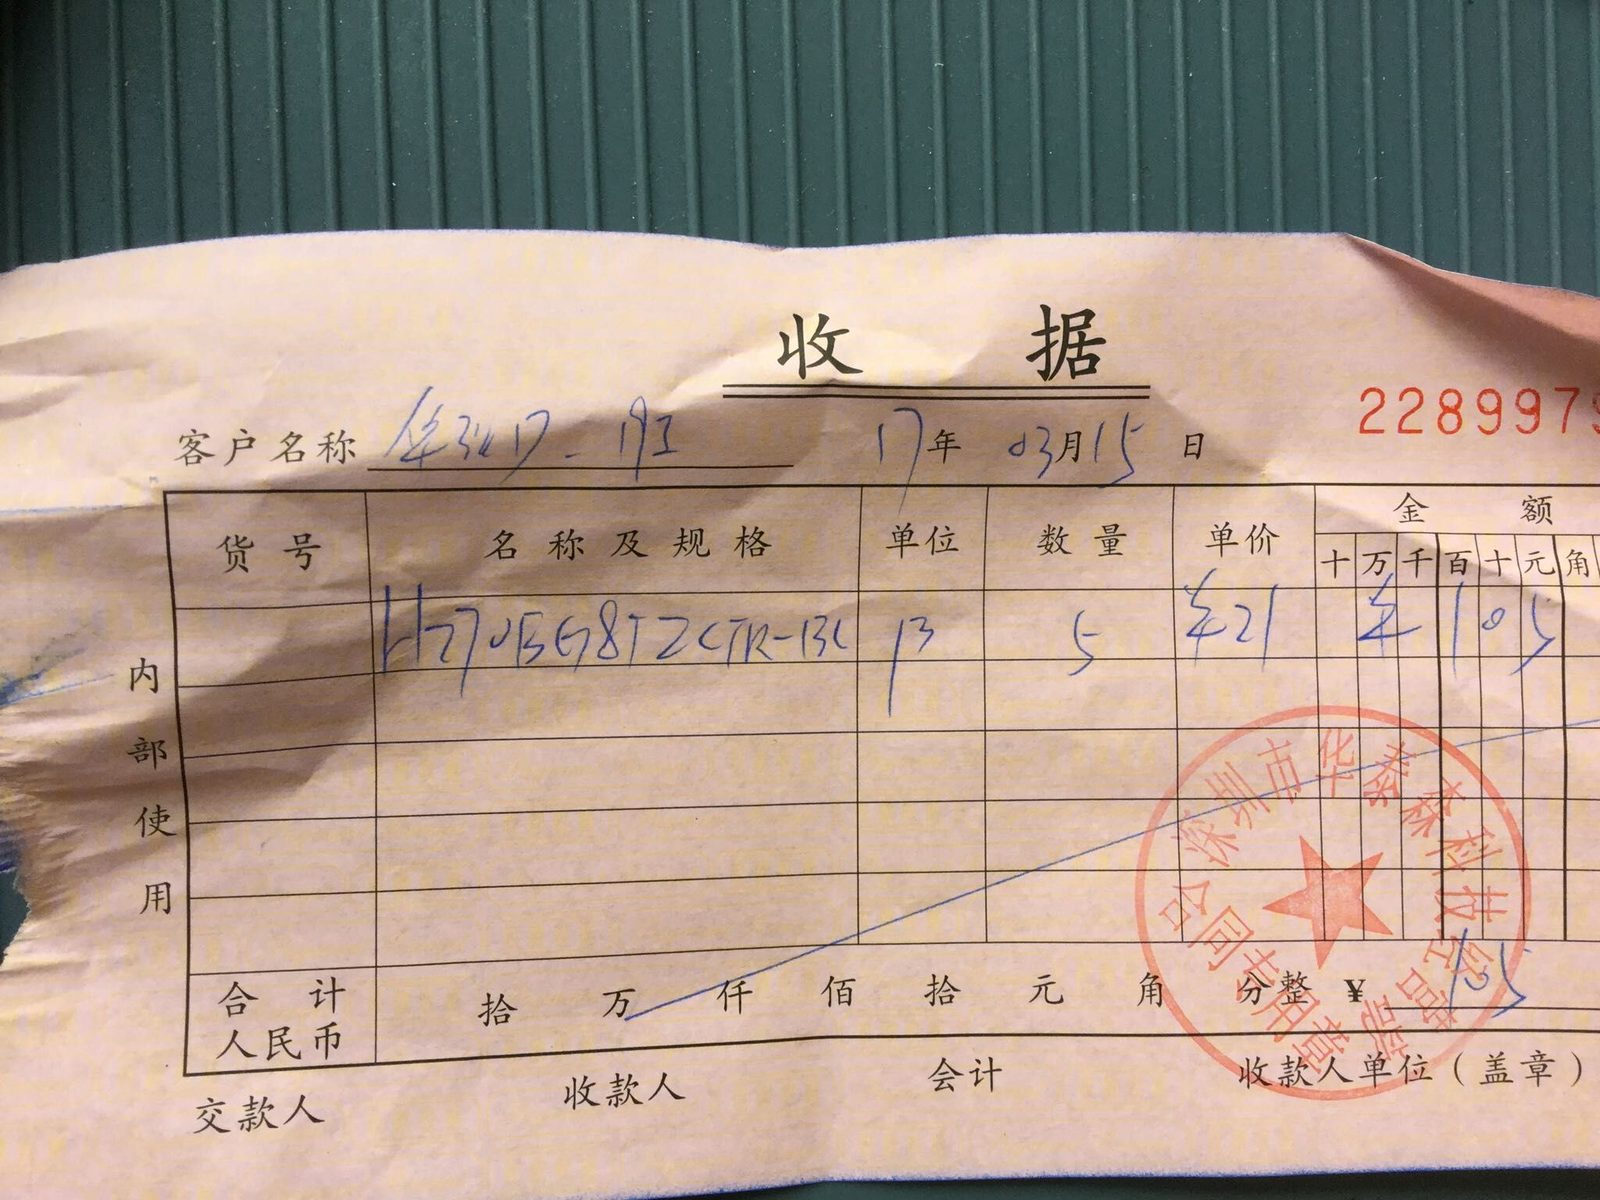 收 据
2289979
客户名称 17年 03月15日
货号 名称及规格 单位 数量 单价 金额
十 万 千 百 十 元 角
H27UBG8T2CTR-BC 片 5 ¥21 ¥105
内部使用
合计 人民币 拾 万 仟 佰 拾 元 角 分整 ¥ 105
交款人 收款人 会计 收款人单位(盖章)
深圳市华泰森科技
合同专用章